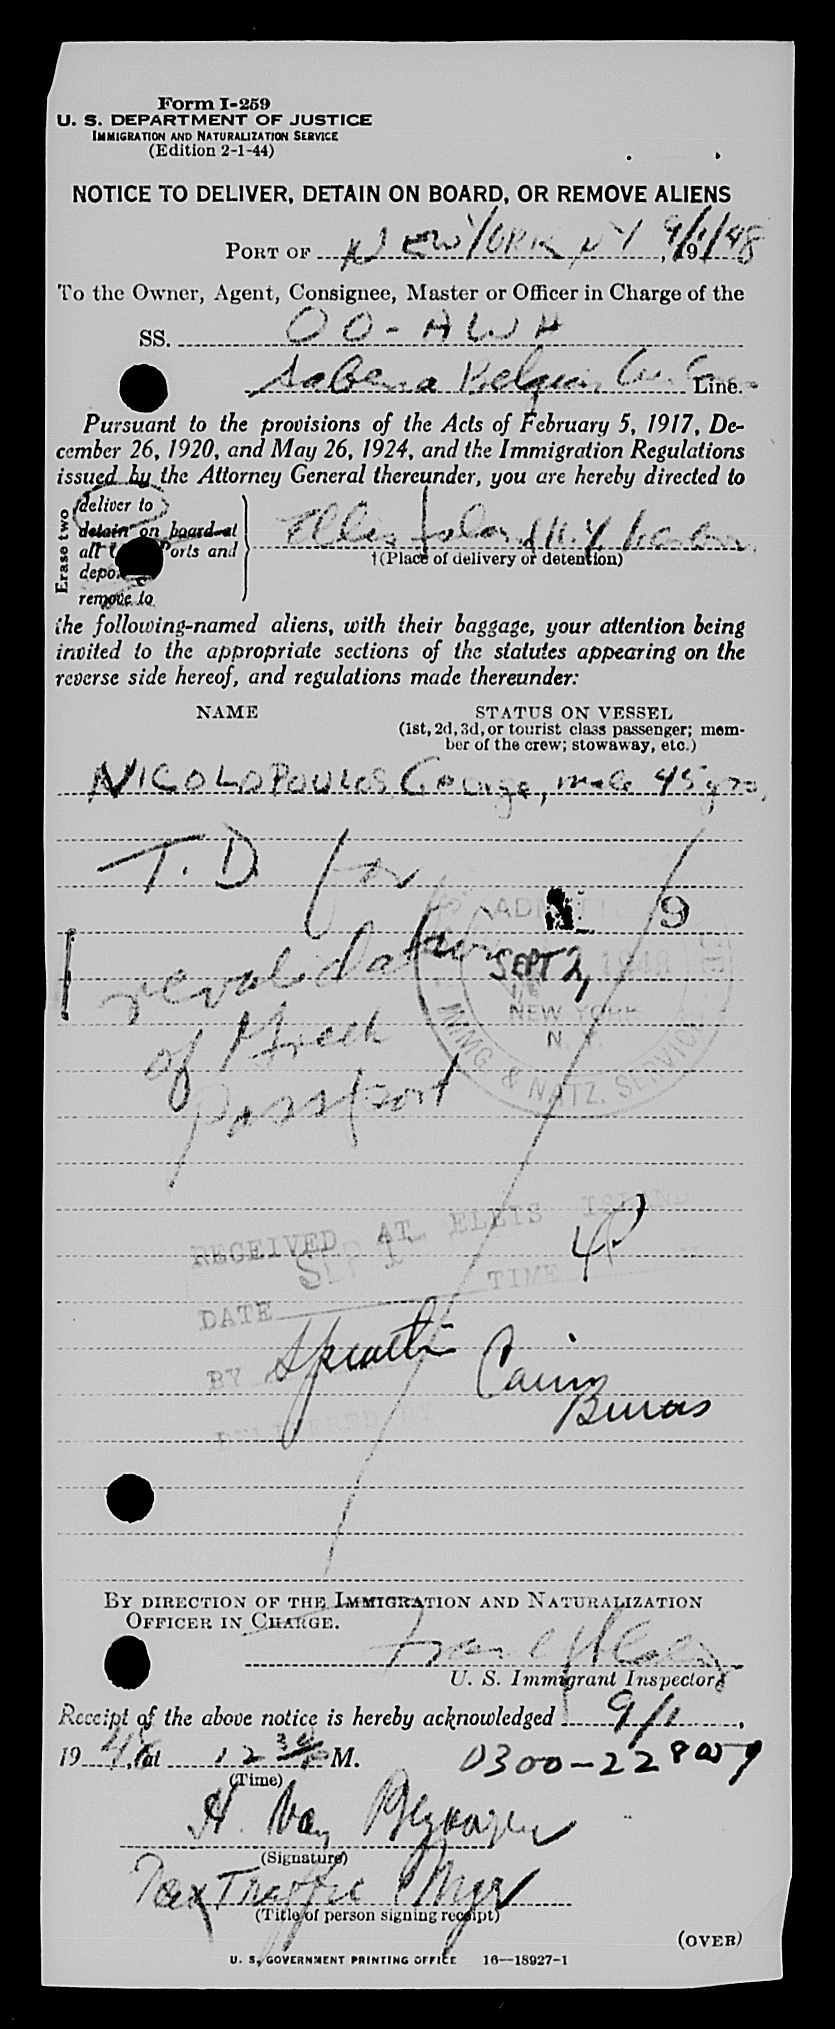 Form I-259
U. S. DEPARTMENT OF JUSTICE
IMMIGRATION AND NATURALIZATION SERVICE
(Edition 2-1-44)
NOTICE TO DELIVER, DETAIN ON BOARD, OR REMOVE ALIENS
PORT OF NEW YORK NY 9/1/48
To the Owner, Agent, Consignee, Master or Officer in Charge of the
SS. OO-AWH
Sabena Belgian Line.
Pursuant to the provisions of the Acts of February 5, 1917, De-
cember 26, 1920, and May 26, 1924, and the Immigration Regulations
issued by the Attorney General thereunder, you are hereby directed to
Erase two
deliver to
detain on board at
all ports and
remove to
Ellis Island N.Y. harbor
†(Place of delivery or detention)
the following-named aliens, with their baggage, your attention being
invited to the appropriate sections of the statutes appearing on the
reverse side hereof, and regulations made thereunder:
NAME STATUS ON VESSEL
(1st, 2d, 3d, or tourist class passenger; mem-
ber of the crew; stowaway, etc.)
NICOLOPOULOS, George, male 45 yrs,
T. D for
ADMITTED 9
revalidation SEPT 2, 1948
NEW YORK
of Greek N. Y.
IMMG. & NATZ. SERVICE
Passport
RECEIVED AT ELLIS ISLAND
SEP 1
DATE TIME
BY
BY DIRECTION OF THE IMMIGRATION AND NATURALIZATION
OFFICER IN CHARGE.
U. S. Immigrant Inspector
Receipt of the above notice is hereby acknowledged 9/1,
19 48, at 12 30 M. 0300-228057
(Time)
H. Van
(Signature)
Traffic Mgr
(Title of person signing receipt)
(OVER)
U. S. GOVERNMENT PRINTING OFFICE 16—18927-1